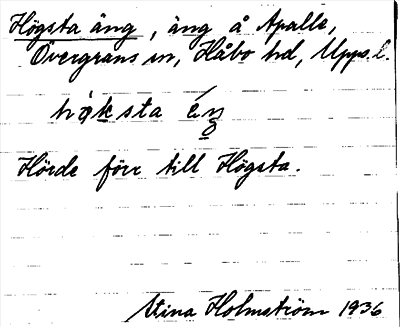 Högsta äng, äng å Apalle,
Övergrans sn, Håbo hd, Upps. l.
høksta ɛ́ŋ
Hörde förr till Högsta.
Stina Holmström 1936